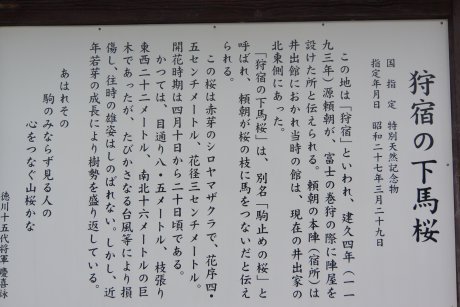 狩宿の下馬桜
国指定 特別天然記念物
指定年月日 昭和二十七年三月二十九日
この地は「狩宿」といわれ、建久四年（一一
九三年）源頼朝が、富士の巻狩の際に陣屋を
設けた所と伝えられる。頼朝の本陣（宿所）は
井出館におかれ当時の館は、現在の井出家の
北東側にあった。
「狩宿の下馬桜」は、別名「駒止めの桜」と
呼ばれ、頼朝が桜の枝に馬をつないだと伝え
られる。
この桜は赤芽のシロヤマザクラで、花序四・
五センチメートル、花径三センチメートル。
開花時期は四月十日から二十日頃である。
かつては、目通り八・五メートル、枝張り
東西二十二メートル、南北十六メートルの巨
木であったが、たびかさなる台風等により損
傷し、往時の雄姿はしのばれない。しかし、近
年若芽の成長により樹勢を盛り返している。
あはれその
駒のみならず見る人の
心をつなぐ山桜かな
徳川十五代将軍 慶喜詠